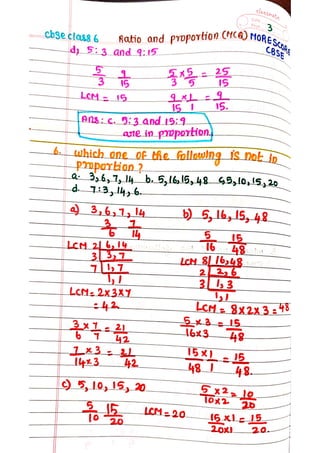 classmate
3
cbse class 6 Ratio and proportion (MCQ) MORESCORE CBSE
d) 5:3 and 9:15
5/3 9/15 5/3 x 5/5 = 25/15
LCM = 15 9/15 x 1/1 = 9/15.
Ans: c. 5:3 and 15:9
are in proportion.
6. which one of the following is not in
proportion?
a. 3,6,7,14 b. 5,16,15,48 c. 5,10,15,20
d. 7:3,14,6.
a) 3,6,7,14
3/6 7/14
LCM 2 | 6,14
3 | 3,7
7 | 1,7
1,1
LCM = 2x3x7
= 42
3/6 x 7/7 = 21/42
7x3/14x3 = 21/42
b) 5,16,15,48
5/16 15/48
LCM 8 | 16,48
2 | 2,6
3 | 1,3
1,1
LCM = 8x2x3=48
5x3/16x3 = 15/48
15x1/48 1 = 15/48.
c) 5,10,15,20
5/10 15/20 LCM=20
5x2/10x2 = 10/20
15x1/20x1 = 15/20.